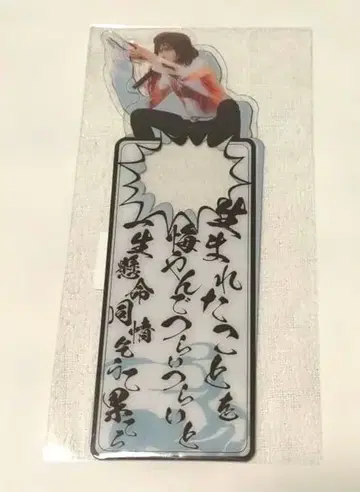 生まれたことを
悔やんでつらいつらいと
一生懸命同情乞うて果てら